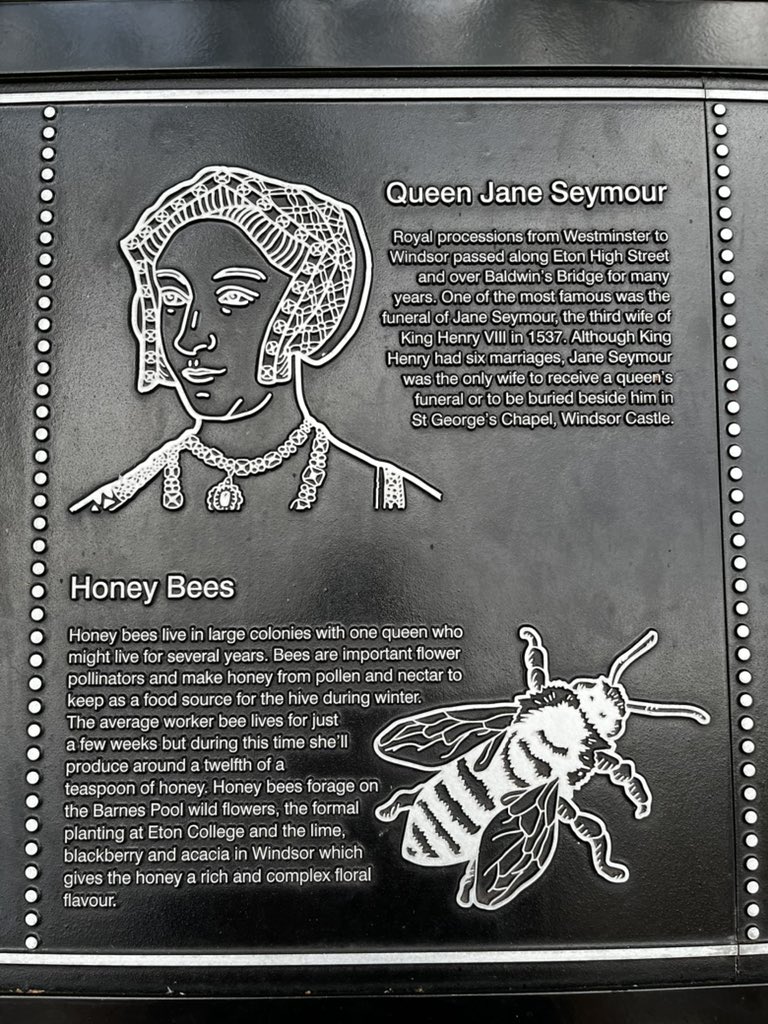 Queen Jane Seymour
Royal processions from Westminster to
Windsor passed along Eton High Street
and over Baldwin's Bridge for many
years. One of the most famous was the
funeral of Jane Seymour, the third wife of
King Henry VIII in 1537. Although King
Henry had six marriages, Jane Seymour
was the only wife to receive a queen's
funeral or to be buried beside him in
St George's Chapel, Windsor Castle.
Honey Bees
Honey bees live in large colonies with one queen who
might live for several years. Bees are important flower
pollinators and make honey from pollen and nectar to
keep as a food source for the hive during winter.
The average worker bee lives for just
a few weeks but during this time she'll
produce around a twelfth of a
teaspoon of honey. Honey bees forage on
the Barnes Pool wild flowers, the formal
planting at Eton College and the lime,
blackberry and acacia in Windsor which
gives the honey a rich and complex floral
flavour.